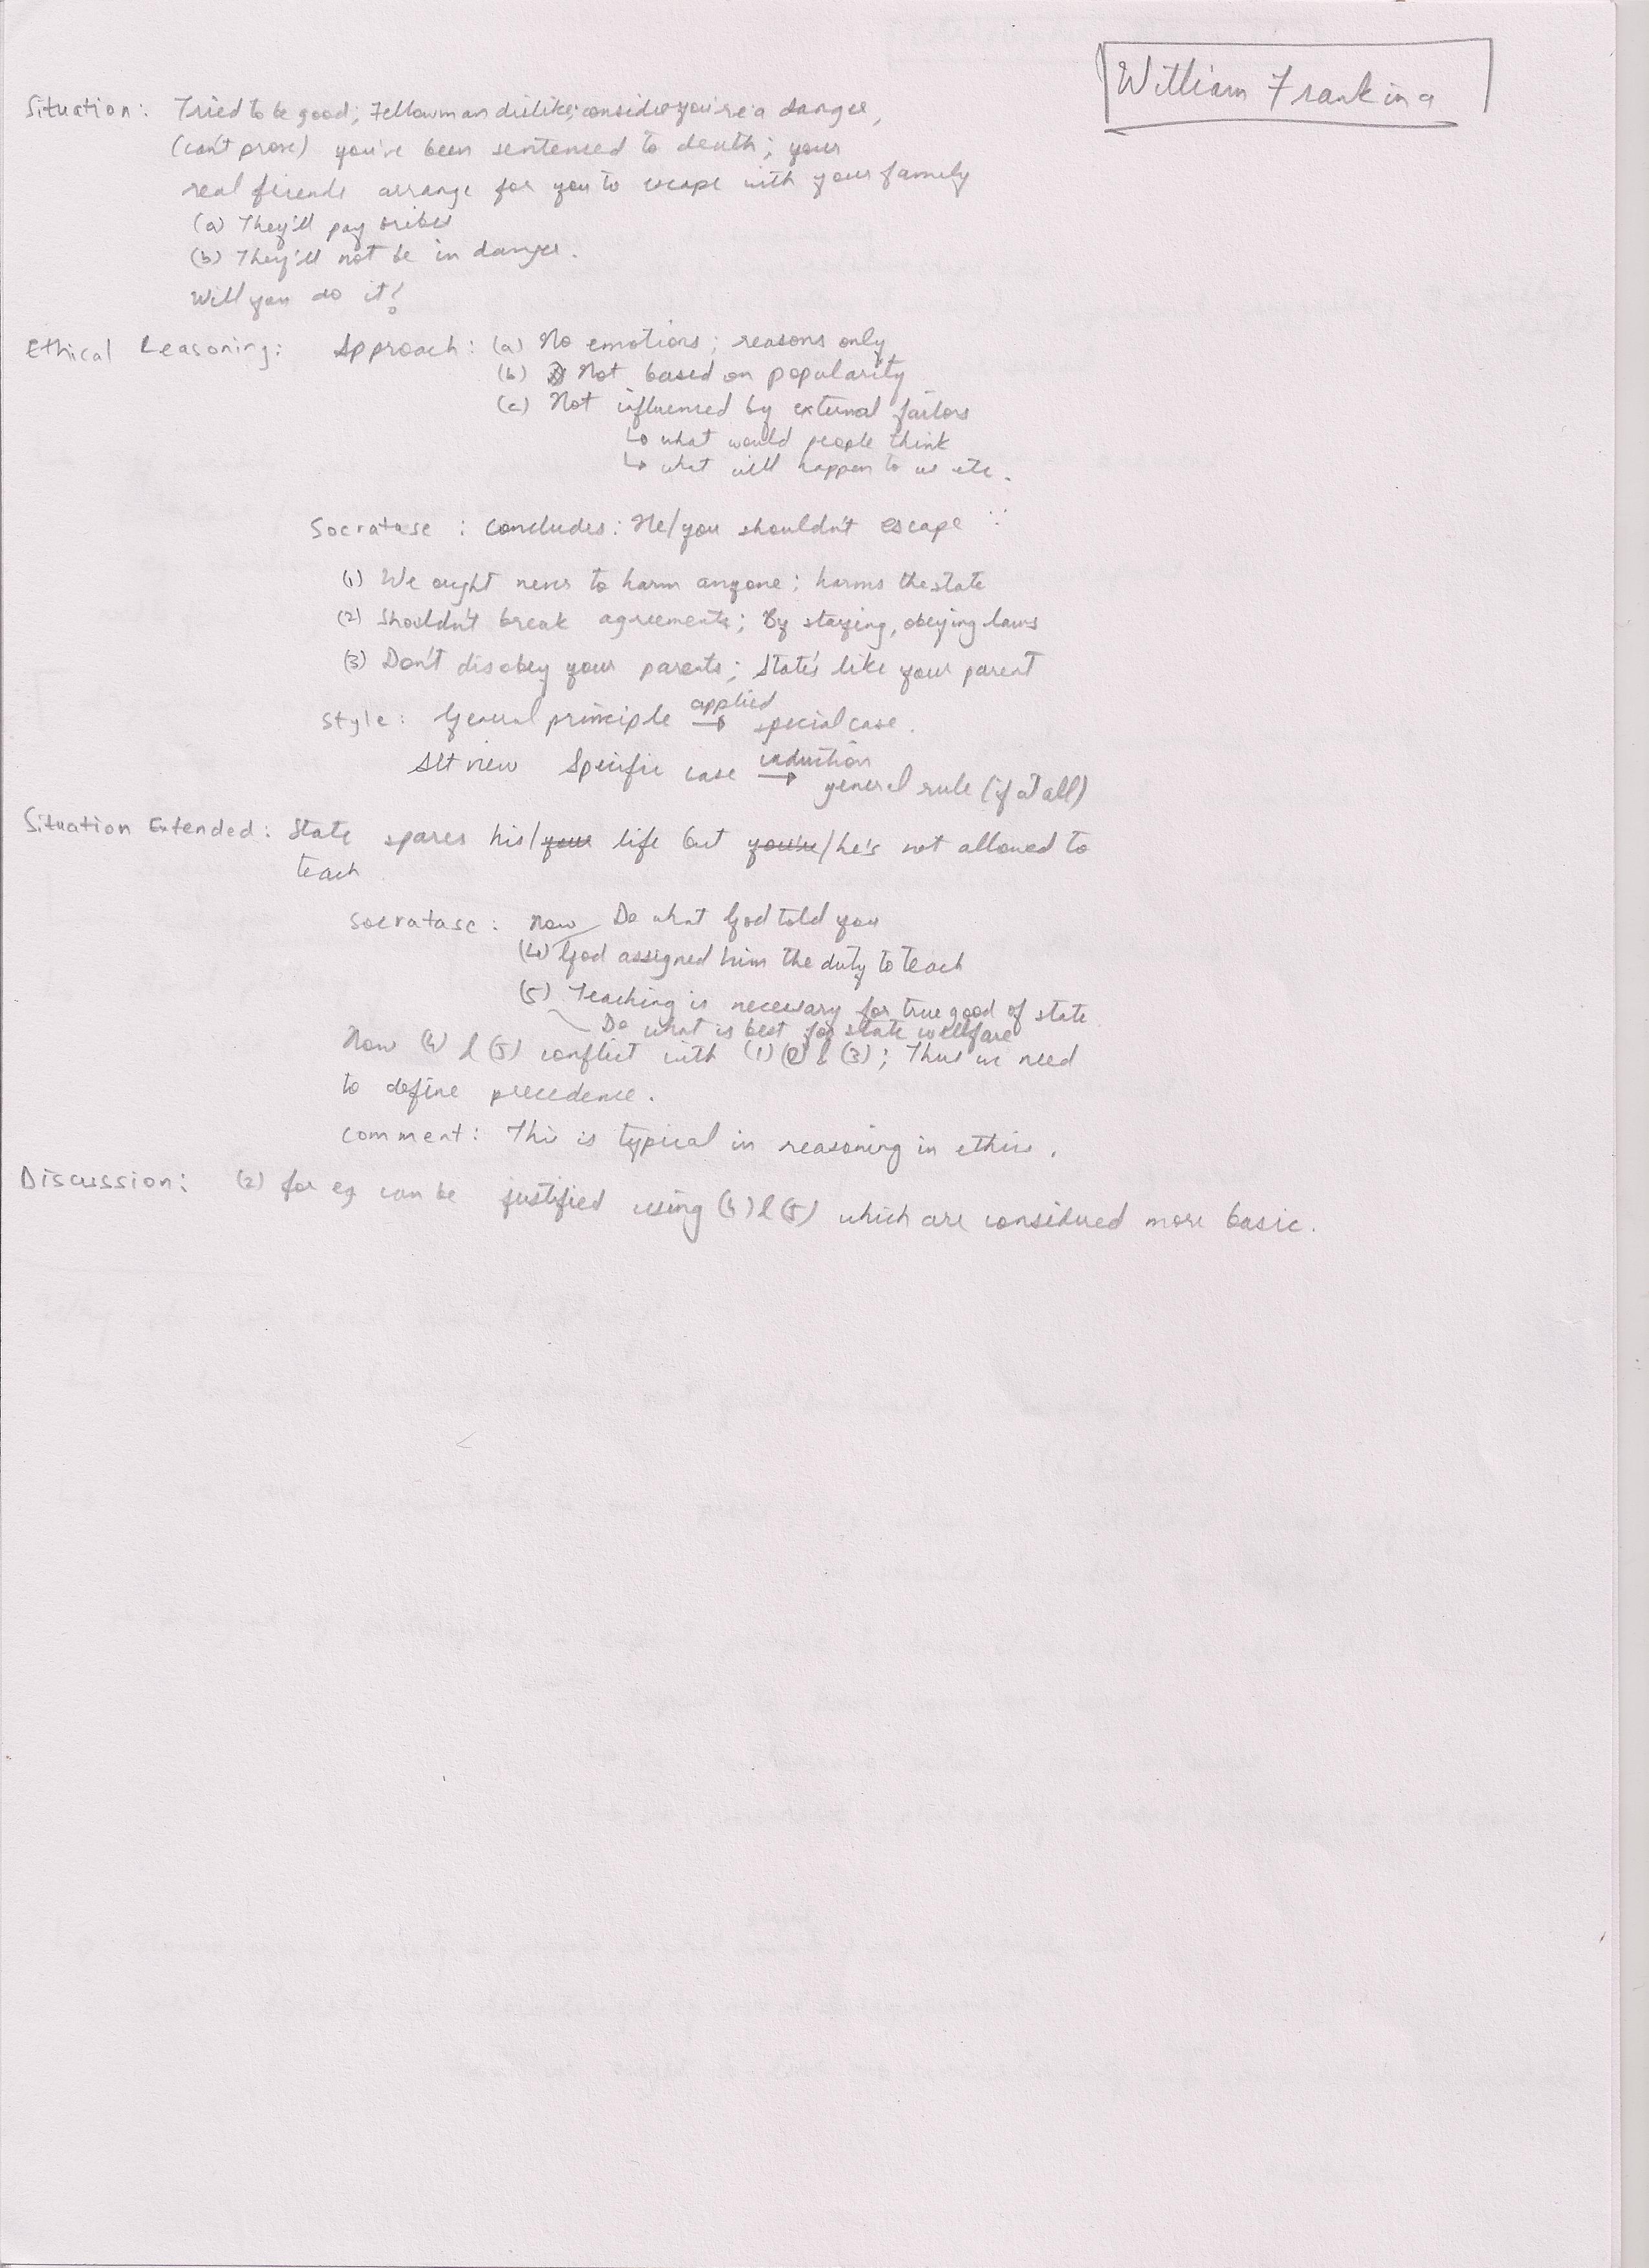 William Frankina
Situation: Tried to be good; Fellowman dislike; consider you're a danger,
(can't prove) you've been sentenced to death; your
real friends arrange for you to escape with your family
(a) They'll pay bribes
(b) They'll not be in danger.
Will you do it?
Ethical Reasoning: Approach: (a) No emotions; reasons only
(b) Not based on popularity
(c) Not influenced by external factors
↳ what would people think
↳ what will happen to us etc.
Socratase : Concludes: He/you shouldn't escape ∵
(1) We ought never to harm anyone; harms the state
(2) Shouldn't break agreements; By staying, obeying laws
(3) Don't disobey your parents; State's like your parent
applied
Style: General principle → special case.
induction
Alt view Specific case → general rule (if at all)
Situation Extended: State spares his/your life but you're/he's not allowed to
teach
Socratase: Now Do what God told you
(4) God assigned him the duty to teach
(5) Teaching is necessary for true good of state
Do what is best for state wellfare
Now (4) & (5) conflict with (1) (2) & (3); Thus we need
to define precedence.
comment: This is typical in reasoning in ethics.
Discussion: (2) for eg can be justified using (4) & (5) which are considered more basic.